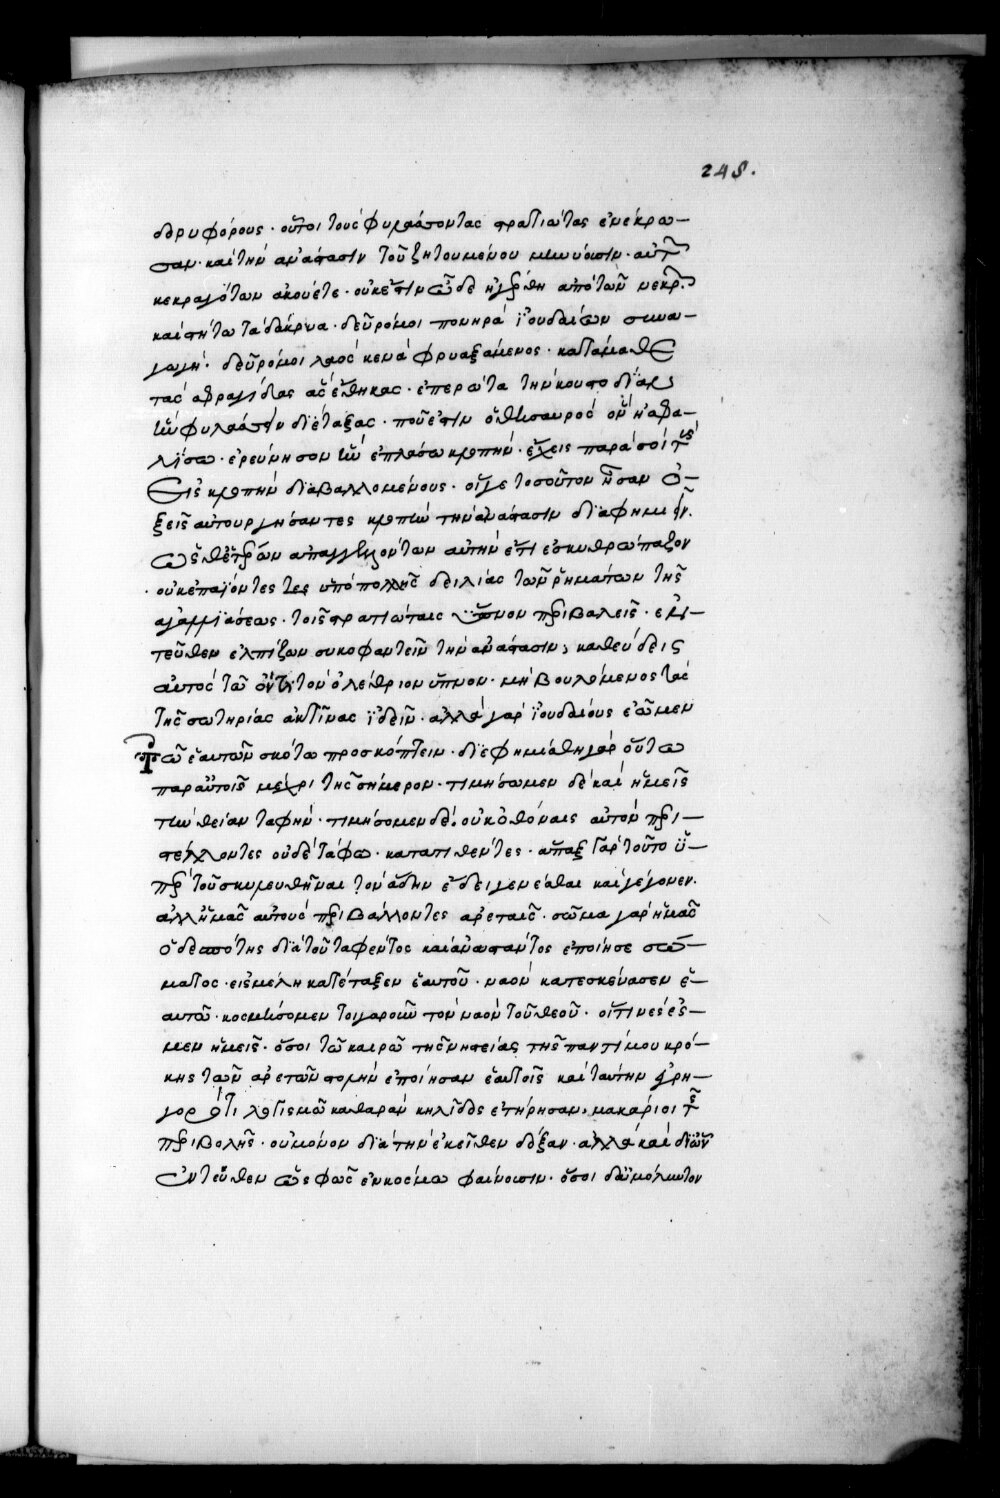 248.
δορυφόρους · οὗτοι τοὺς φυλάσσοντας στρατιώτας ἐνέκρω-
σαν · καὶ τὴν ἀνάστασιν τοῦ ζητουμένου μηνύουσιν · αὐτῶν
κεκραγότων ἀκούετε · οὐκ ἔστιν ὧδε ἠγέρθη ἀπὸ τῶν νεκρῶν.
καὶ στήτω τὰ δάκρυα · δεῦρό μοι πονηρὰ ἰουδαίων συνα-
γωγή · δεῦρό μοι λαὸς κενὰ φρυαξάμενος · κατάμαθε
τὰς σφραγίδας ἃς ἔθηκας · ἐπερώτα τὴν κουστωδίαν
ἣν φυλάσσειν διέταξας · ποῦ ἐστιν ὁ θησαυρὸς ὃν ἠσφα-
λίσω · ἐρεύνησον ἣν ἐπλάσω κλοπήν · ἔχεις παρὰ σοὶ τοὺς
εἰς κλοπὴν διαβαλλομένους · οἵγε τοσοῦτον ἦσαν ὀ-
ξεῖς αὐτουργήσαντες κλοπῆς τὴν ἀνάστασιν διαφημι
ὡς ἑτέρων ἀπαγγελλόντων αὐτὴν ἔτι ἐσκυθρώπαζον
· οὐκ ἐπαΐοντες τες ὑπὸ πολλῆς δειλίας τῶν ῥημάτων τῆς
ἀγαλλιάσεως · τοῖς στρατιώταις ὕπνον περιβαλεῖς · ἐν-
τεῦθεν ἐλπίζων συκοφαντεῖν τὴν ἀνάστασιν, καθεύδεις
αὐτὸς τῷ ὄντι τὸν ὀλέθριον ὕπνον · μὴ βουλόμενος τὰς
τῆς σωτηρίας ἀκτῖνας ἰδεῖν · ἀλλὰ γὰρ ἰουδαίους ἐῶμεν
τῷ ἑαυτῶν σκότω προσκόπτειν · διεφημίσθη γὰρ οὕτω
παρ αὐτοῖς μέχρι τῆς σήμερον · τιμήσωμεν δὲ καὶ ἡμεῖς
τὴν θείαν ταφήν · τιμήσομεν δὲ. οὐκ ὀθόναις αὐτὸν περι-
στέλλοντες οὐδὲ τάφω · κατατιθέντες · ἅπαξ γὰρ τοῦτο ὑ-
πὲρ τοῦ σκυλευθῆναι τὸν ἅδην ἔδει γενέσθαι καὶ γέγονεν.
ἀλλ ἡμᾶς αὐτοὺς περιβάλλοντες ἀρεταῖς · σῶμα γὰρ ἡμᾶς
ὁ δεσπότης διὰ τοῦ ταφέντος καὶ ἀναστάντος ἐποίησε σώ-
ματος · εἰς μέλη κατέταξεν ἑαυτοῦ · ναὸν κατεσκεύασεν ἑ-
αυτῶ · κοσμήσομεν τοιγαροῦν τὸν ναὸν τοῦ θεοῦ · οἵτινές ἐσ-
μεν ἡμεῖς · ὅσοι τῶ καιρῶ τῆς νηστείας τῆς παντίμου κρό-
κης τῶν ἀρετῶν στολὴν ἐποίησαν ἑαυτοῖς καὶ ταύτην ἐγρη-
γορότι λογισμῶ καθαρὰν κηλῖδος ἐτήρησαν, μακάριοι τῆς
περιβολῆς · οὐ μόνον διὰ τὴν ἐκεῖθεν δόξαν · ἀλλὰ καὶ δι ὧν
ἐντεῦθεν ὡς φῶς ἐν κόσμω φαίνουσιν · ὅσοι δὲ